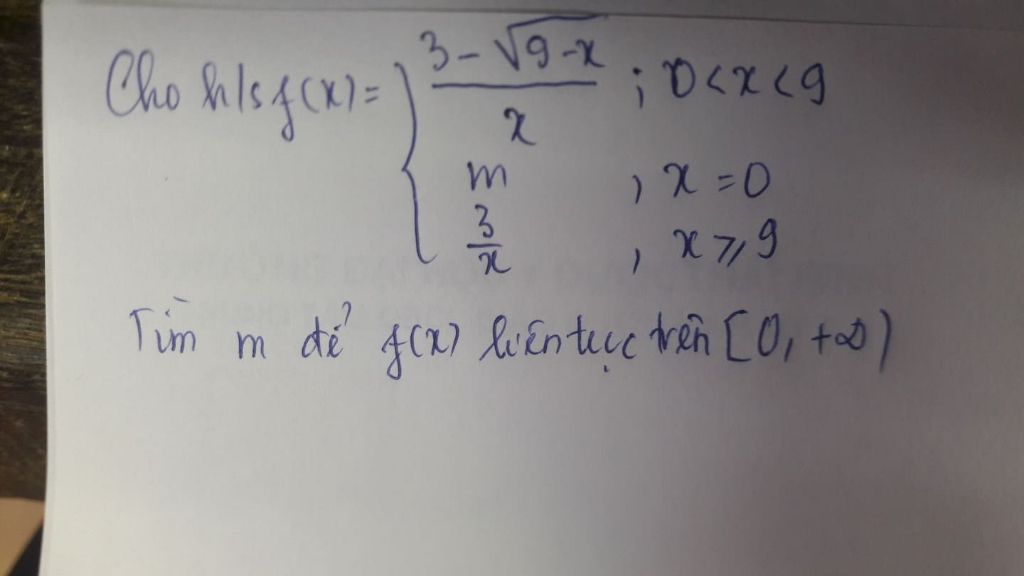 Cho h/s f(x) = { (3 - √(9-x))/x ; 0 < x < 9
m , x = 0
3/x , x ⩾ 9
Tìm m để f(x) liên tục trên [0, +∞)